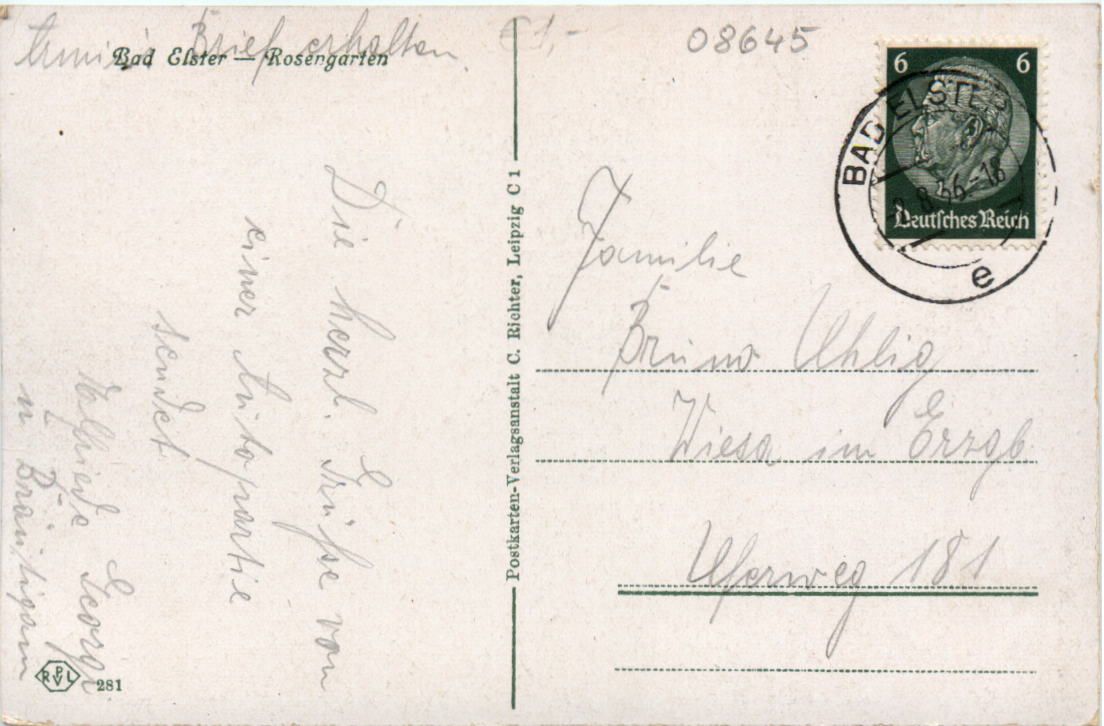 Brief erhalten.
Bad Elster — Rosengarten
€ 1,-
08645
6 6
Deutsches Reich
BAD ELSTER
8.36.18
e
Die herzl. Grüße von
einer Autopartie
sendet
Georgi
u Bräutigam
Postkarten-Verlagsanstalt C. Richter, Leipzig C 1
Familie
Bruno Uhlig
Wiesa im Erzgb
Uferweg 181
RPVL
281